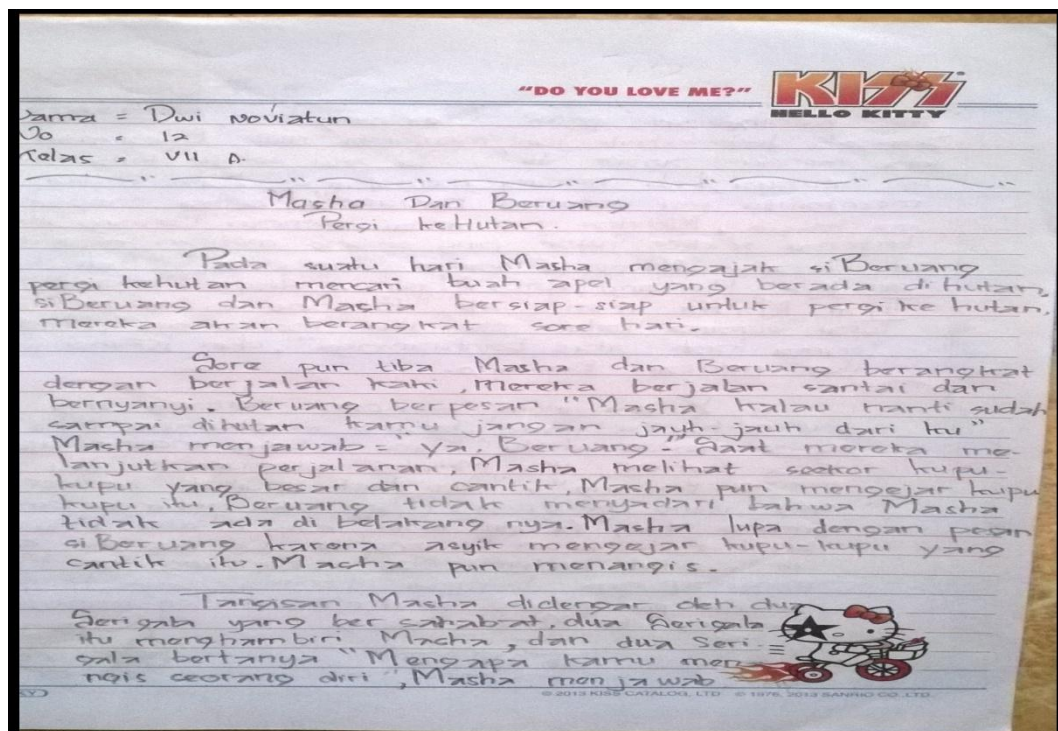 "DO YOU LOVE ME?" KISS
HELLO KITTY
Nama = Dwi Noviatun
No = 12
Kelas = VII A.
Masha Dan Beruang
Pergi keHutan.
Pada suatu hari Masha mengajak siBeruang
pergi kehutan mencari buah apel yang berada dihutan,
siBeruang dan Masha bersiap-siap untuk pergi ke hutan,
mereka akan berangkat sore hari.
Sore pun tiba Masha dan Beruang berangkat
dengan berjalan kaki, mereka berjalan santai dan
bernyanyi. Beruang berpesan "Masha kalau nanti sudah
sampai dihutan kamu jangan jauh-jauh dari ku"
Masha menjawab = "ya, Beruang." Saat mereka me-
lanjutkan perjalanan, Masha melihat seekor kupu-
kupu yang besar dan cantik, Masha pun mengejar kupu
kupu itu, Beruang tidak menyadari bahwa Masha
tidak ada di belakang nya. Masha lupa dengan pesan
siBeruang karena asyik mengejar kupu-kupu yang
cantik itu. Masha pun menangis.
Tangisan Masha didengar oleh dua
Serigala yang ber sahabat, dua Serigala
itu menghambiri Masha, dan dua Seri-
gala bertanya "Mengapa kamu men
ngis seorang diri", Masha menjawab
© 2013 KISS CATALOG, LTD. © 1976, 2013 SANRIO CO., LTD.